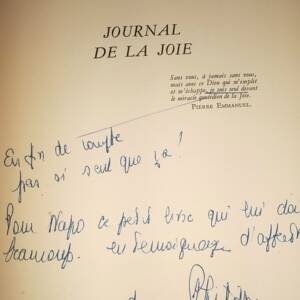 JOURNAL
DE LA JOIE
Sans vous, à jamais sans vous,
mais avec ce Dieu qui m'emplit
et m'échappe, je suis seul devant
le miracle quotidien de la Joie.
PIERRE EMMANUEL.
En fin de compte
pas si seul que ça !
Pour Napo ce petit livre qui lui do
beaucoup. en témoignage d'affect